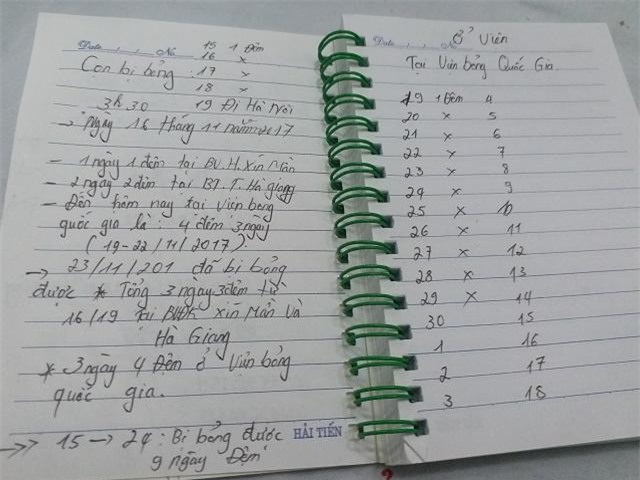 Date , , No 15 1 Đêm
16 x
Con bị bỏng 17 x
18 x
3h30 19 Đi Hà Nội
→ Ngày 16 tháng 11 năm 2017
- 1 ngày 1 đêm tại BV.H.Xín Mần
- 2 ngày 2 đêm tại BT.T.Hà giang
- Đến hôm nay tại Viện bỏng
quốc gia là: 4 đêm 3 ngày
(19-22/11/2017)
→ 23/11/201 đã bị bỏng
được * Tổng 3 ngày 3 đêm từ
16/19 tại BVĐK Xín Mần Và
Hà Giang
* 3 ngày 4 Đêm ở Viện bỏng
quốc gia.
→>> 15 → 24: Bị bỏng được
9 ngày Đêm
HẢI TIẾN
Date , , No Ở Viện
Tại Viện bỏng Quốc Gia
19 1 Đêm 4
20 x 5
21 x 6
22 x 7
23 x 8
24 x 9
25 x 10
26 x 11
27 x 12
28 x 13
29 x 14
30 15
1 16
2 17
3 18